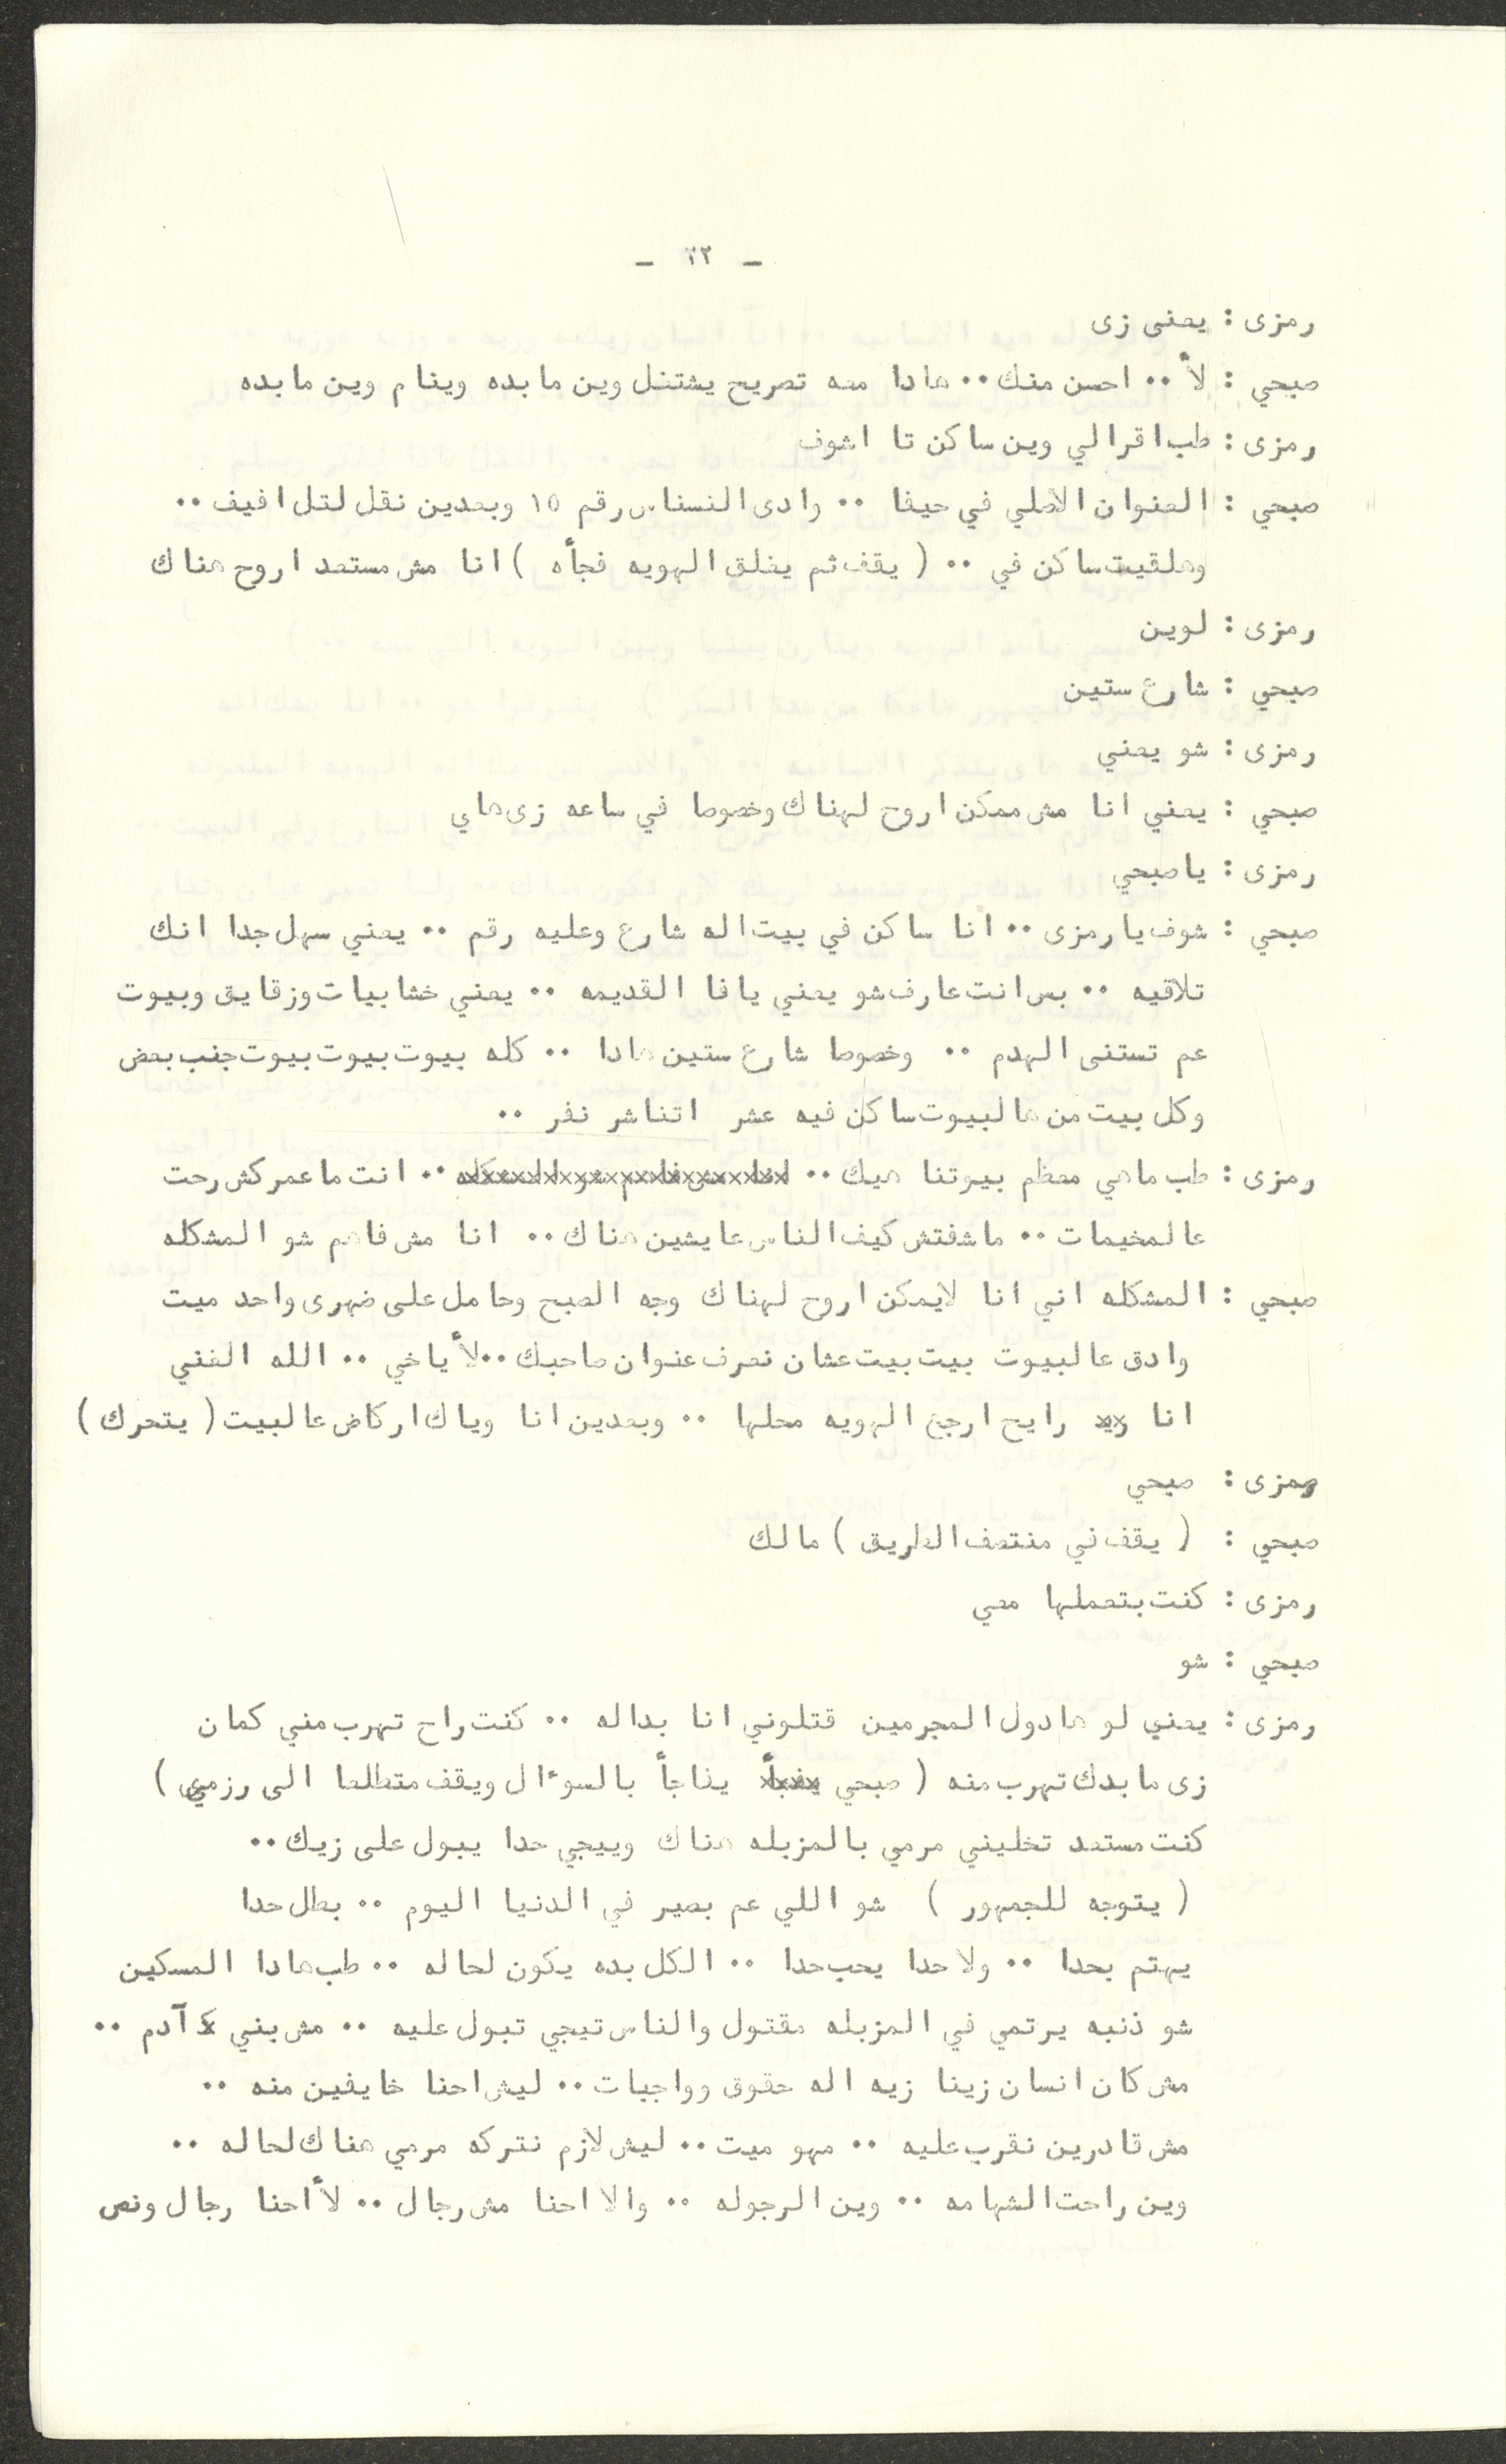 - ٢٢ -
رمزى : يعنى زى
صبحي : لأ .. احسن منك .. هادا معه تصريح يشتغل وين ما بده وينام وين ما بده
رمزى : طب اقرالي وين ساكن تا اشوف
صبحي : العنوان الاصلي في حيفا .. وادى النسناس رقم ١٥ وبعدين نقل لتل افيف ..
وهلقيت ساكن في .. ( يقف ثم يغلق الهويه فجأه ) انا مش مستعد اروح هناك
رمزى : لوين
صبحي : شارع ستين
رمزى : شو يعني
صبحي : يعني انا مش ممكن اروح لهناك وخصوصا في ساعه زى هاي
رمزى : يا صبحي
صبحي : شوف يا رمزى .. انا ساكن في بيت اله شارع وعليه رقم .. يعني سهل جدا انك
تلاقيه .. بس انت عارف شو يعني يافا القديمه .. يعني خشابيات وزقايق وبيوت
عم تستنى الهدم .. وخصوصا شارع ستين هادا .. كله بيوت بيوت بيوت جنب بعض
وكل بيت من هالبيوت ساكن فيه عشر اتناشر نفر ..
رمزى : طب ما هي معظم بيوتنا هيك .. انت ما عمركش رحت
عالمخيمات .. ما شفتش كيف الناس عايشين هناك .. انا مش فاهم شو المشكله
صبحي : المشكله اني انا لايمكن اروح لهناك وجه الصبح وحامل على ضهرى واحد ميت
وادق عالبيوت بيت بيت عشان نعرف عنوان صاحبك .. لأ ياخي .. الله الغني
انا رايح ارجع الهويه محلها .. وبعدين انا وياك اركاض عالبيت ( يتحرك )
رمزى : صبحي
صبحي : ( يقف في منتصف الطريق ) مالك
رمزى : كنت بتعملها معي
صبحي : شو
رمزى : يعني لو هادول المجرمين قتلوني انا بداله .. كنت راح تهرب مني كمان
زى ما بدك تهرب منه ( صبحي يفاجأ بالسوءال ويقف متطلعا الى رزمي )
كنت مستعد تخليني مرمي بالمزبله هناك وييجي حدا يبول على زيك ..
( يتوجه للجمهور ) شو اللي عم بصير في الدنيا اليوم .. بطل حدا
يهتم بحدا .. ولا حدا يحب حدا .. الكل بده يكون لحاله .. طب هادا المسكين
شو ذنبه يرتمي في المزبله مقتول والناس تيجي تبول عليه .. مش بني آدم ..
مش كان انسان زينا زيه اله حقوق وواجبات .. ليش احنا خايفين منه ..
مش قادرين نقرب عليه .. مهو ميت .. ليش لازم نتركه مرمي هناك لحاله ..
وين راحت الشهامه .. وين الرجوله .. والا احنا مش رجال .. لأ احنا رجال ونص